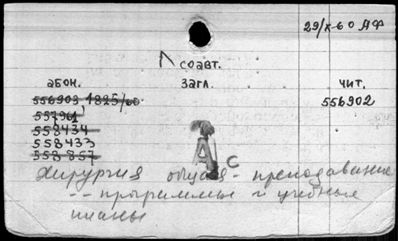 29/X-60 АФ
соавт.
абон. загл. чит.
556903, 1825/60 556902
557961
558434
558433
558857
А С
Хирургия общая - преподавание
-- программы и учебные
планы